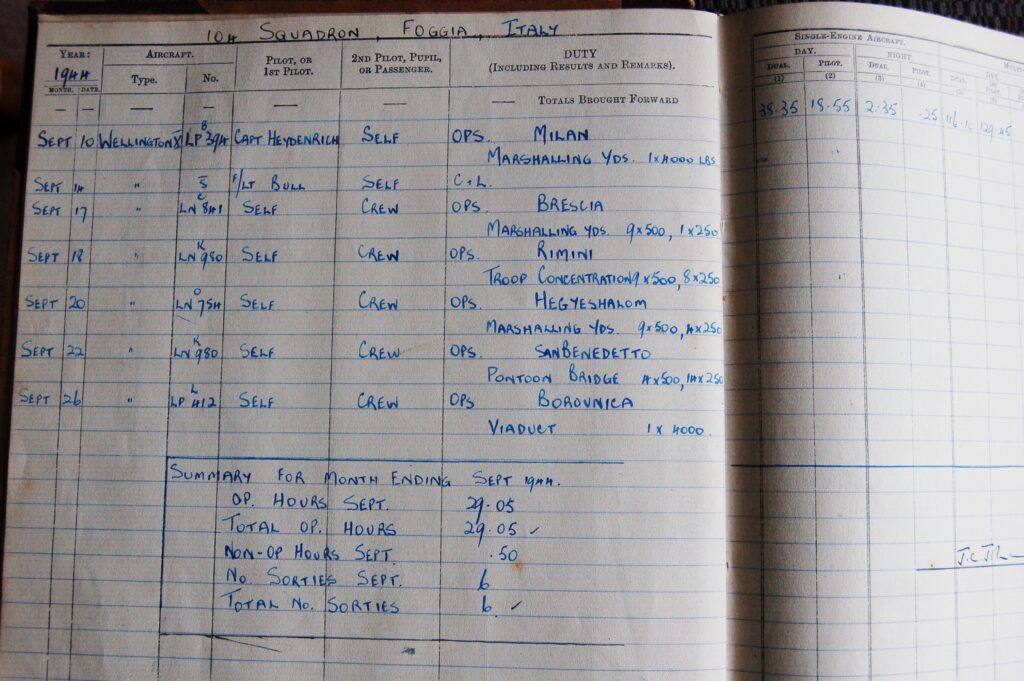 104 SQUADRON, FOGGIA, ITALY
YEAR: AIRCRAFT. PILOT, OR 2ND PILOT, PUPIL, DUTY
1944 Type. No. 1ST PILOT. OR PASSENGER. (INCLUDING RESULTS AND REMARKS).
MONTH. DATE.
— — — — — — — TOTALS BROUGHT FORWARD
SEPT 10 WELLINGTON X B LP 394 CAPT HEYDENRICH SELF OPS. MILAN
MARSHALLING YDS. 1x4000 LBS
SEPT 14 " S F/LT BULL SELF C+L.
SEPT 17 " C LN 841 SELF CREW OPS. BRESCIA
MARSHALLING YDS. 9x500, 1x250
SEPT 18 " K LN 980 SELF CREW OPS. RIMINI
TROOP CONCENTRATION 9x500, 8x250
SEPT 20 " O LN 754 SELF CREW OPS. HEGYESHALOM
MARSHALLING YDS. 9x500, 4x250
SEPT 22 " K LN 980 SELF CREW OPS. SAN BENEDETTO
PONTOON BRIDGE 4x500, 14x250
SEPT 26 " L LP 412 SELF CREW OPS BOROVNICA
VIADUCT 1x4000.
SUMMARY FOR MONTH ENDING SEPT 1944.
OP. HOURS SEPT. 29.05
TOTAL OP. HOURS 29.05 ✓
NON-OP HOURS SEPT. .50
NO. SORTIES SEPT. 6
TOTAL NO. SORTIES 6 ✓
SINGLE-ENGINE AIRCRAFT.
DAY. NIGHT.
DUAL. PILOT. DUAL. PILOT.
(1) (2) (3) (4)
38.35 18.55 2.35 .25 116.10 129.45